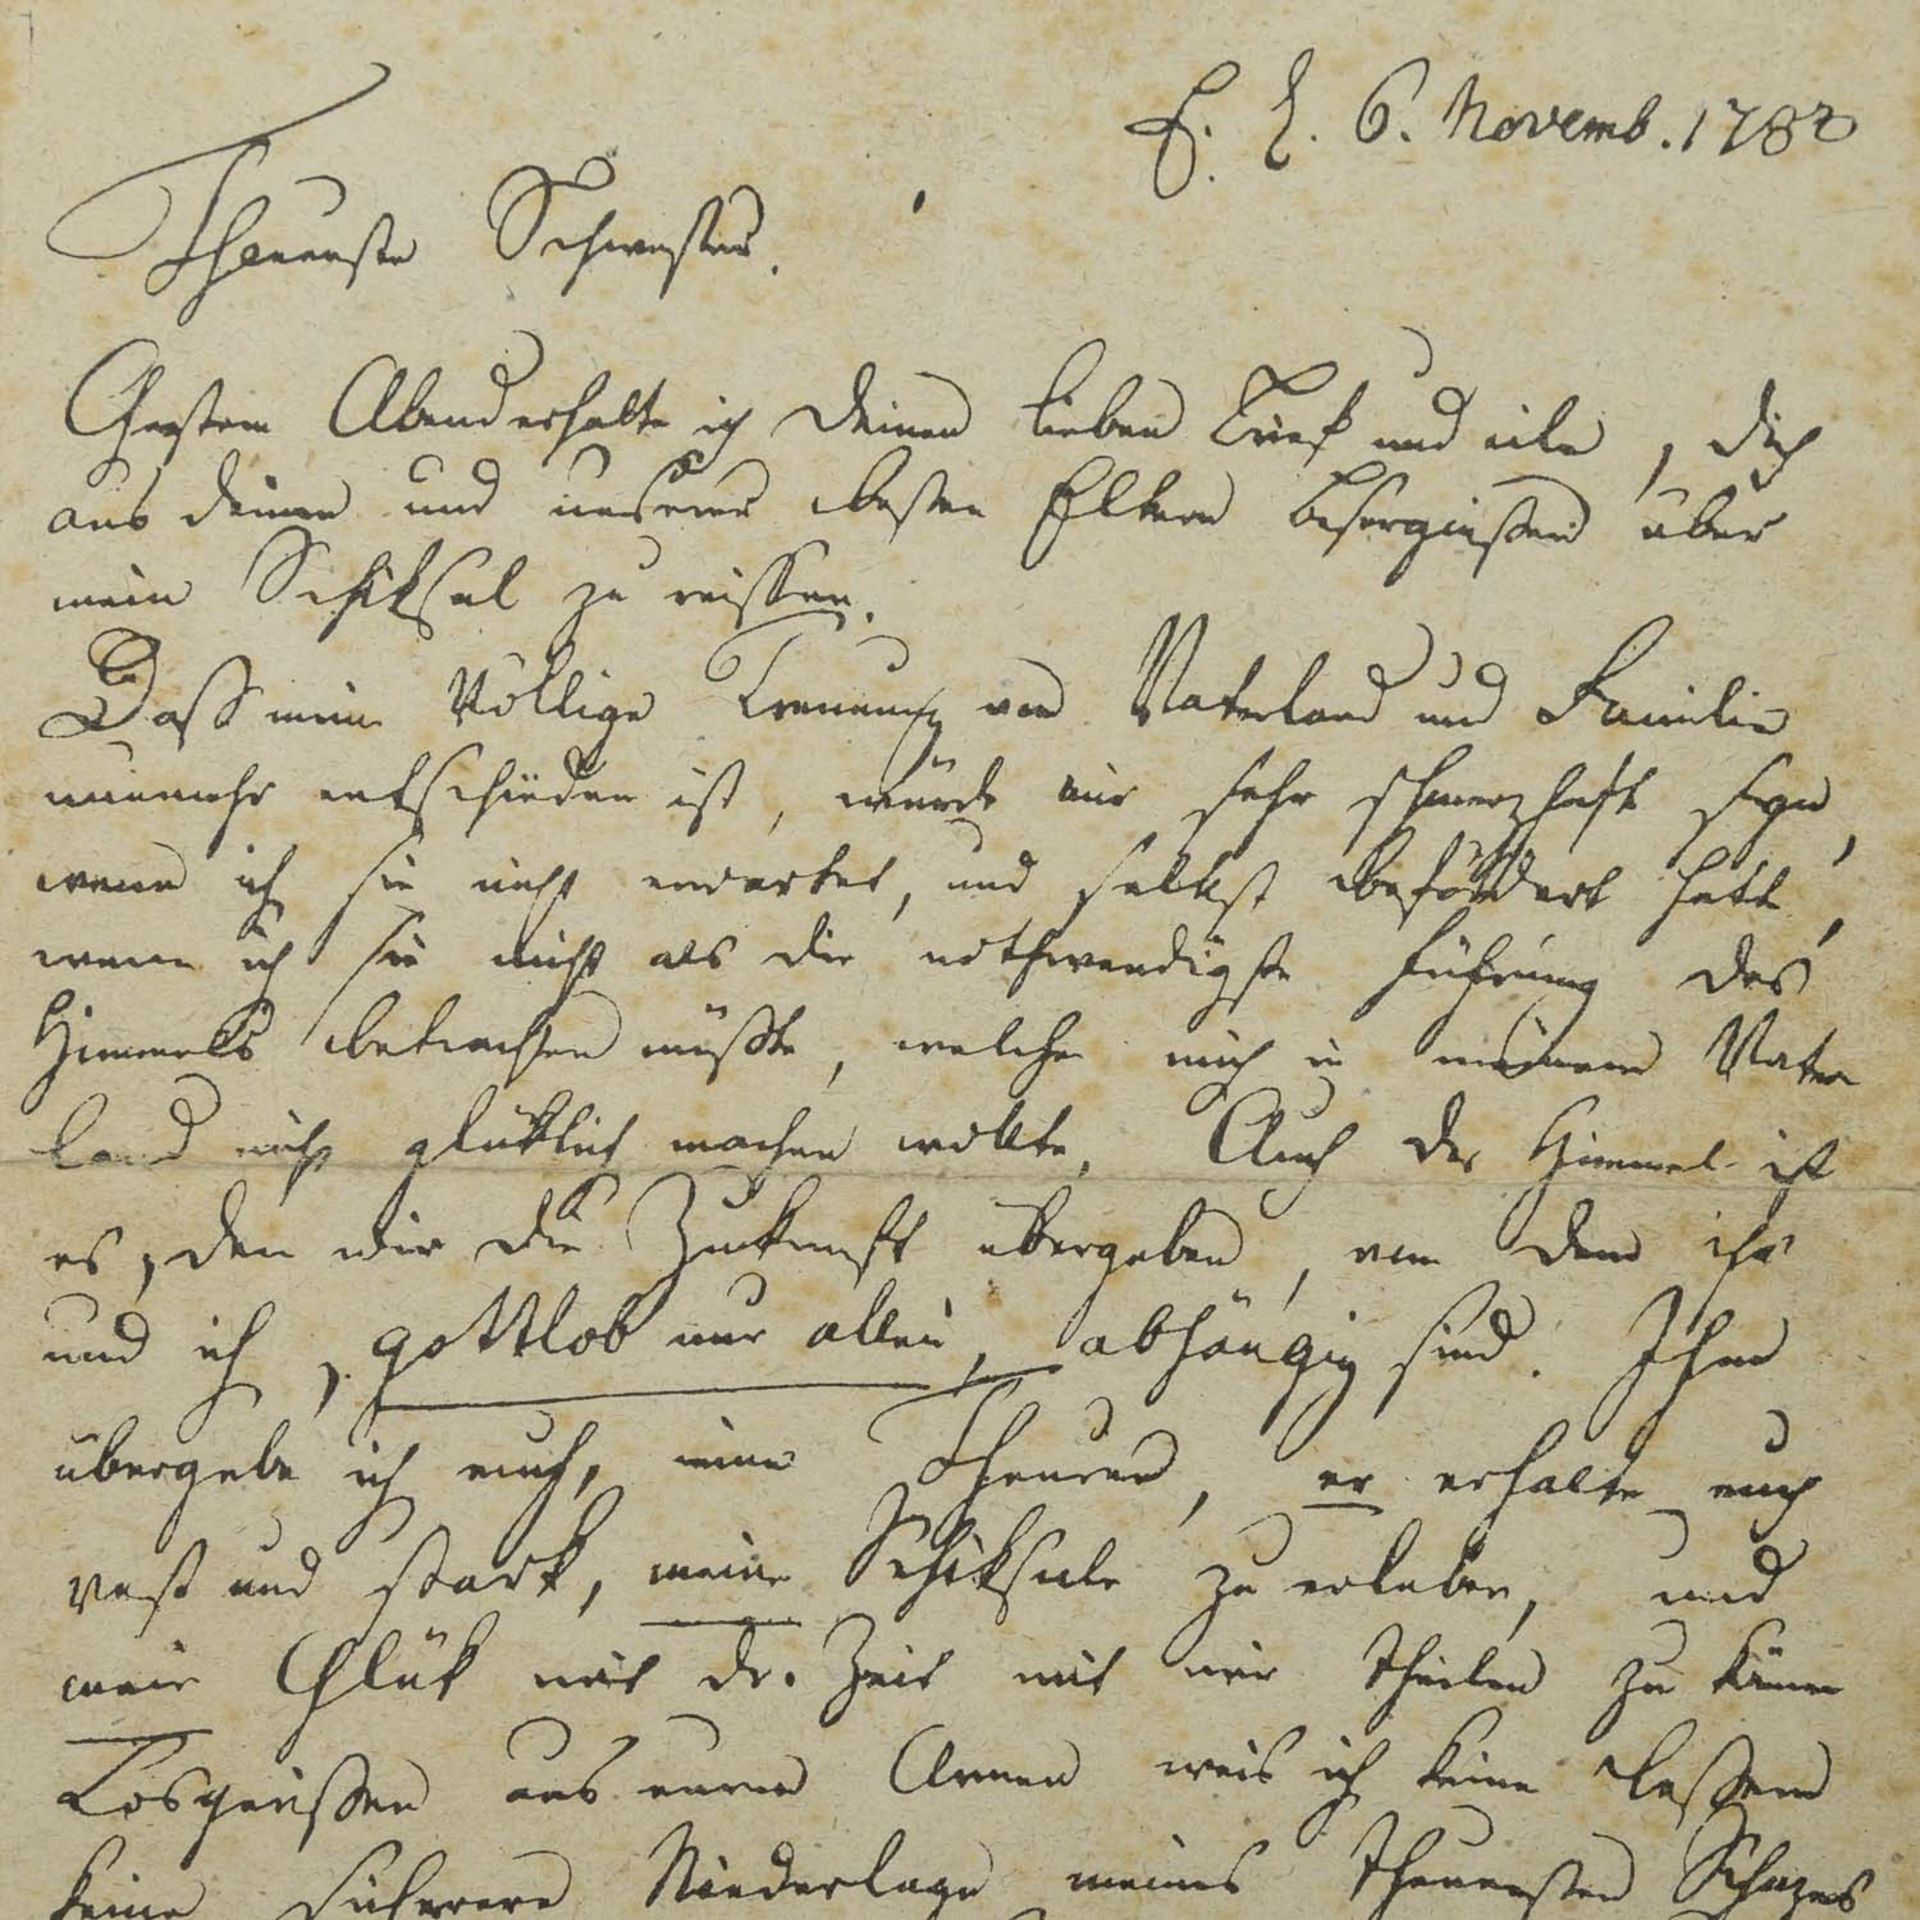 E. E. 6. Novemb. 1782
Theuerste Schwester.
Gestern Abend erhalte ich deinen lieben Brief und eile, dich
aus deinen und unserer besten Eltern Besorgnißen über
mein Schiksal zu reissen.
Daß meine Völlige Trennung von Vaterland und Familie
nunmehr entschieden ist, würde mir sehr schmerzhaft seyn,
wenn ich sie nicht erwartet, und selbst befördert hätte,
wenn ich sie nicht als die nothwendigste Führung des
Himmels betrachten müßte, welcher mich in meinem Vater
land nicht glüklich machen wollte. Auch der Himmel ist
es, dem wir die Zukunft übergeben, von dem ihr
und ich, gottlob nur allein, abhängig sind. Ihm
übergebe ich euch, meine Theuren, er erhalte euch
vest und stark, meine Schiksale zu erleben, und
mein Glük mit der Zeit mit mir theilen zu können
Losgerißen aus euren Armen weis ich keine beßere
keine sicherere Niederlage meines theuersten Schazes